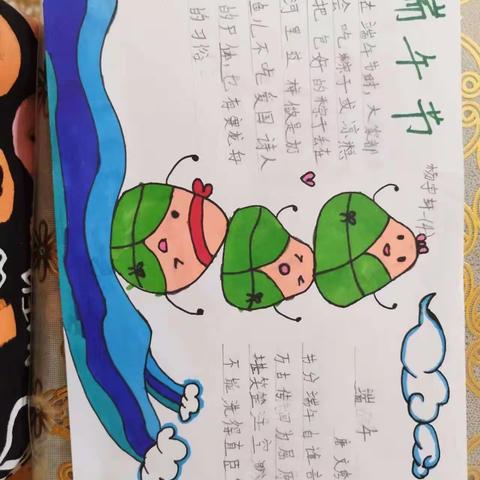 端午节
在端午节时,大家都
会吃粽子或凉糕
把包好的粽子丢在
河里这样做是
鱼儿不吃爱国诗人
的尸体,也有赛龙舟
的习俗
端午
唐 文
节分端午自谁言
万古传闻为屈原
堪笑楚江空渺
不能洗得直臣